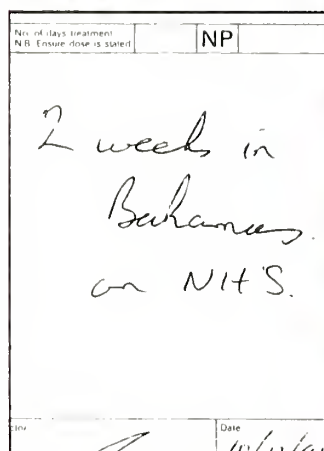 No. of days treatment
N.B. Ensure dose is stated
NP
2 weeks in
Bahamas.
on NHS.
Date